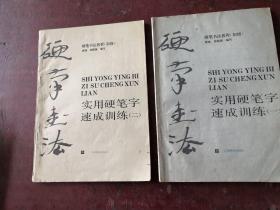 硬笔书法
硬笔书法教程(初级)
SHI YONG YING BI
ZI SU CHENG XUN
LIAN
实用硬笔字
速成训练(二)
硬笔书法
硬笔书法教程(初级)
SHI YONG YING BI
ZI SU CHENG XUN
LIAN
实用硬笔字
速成训练(一)